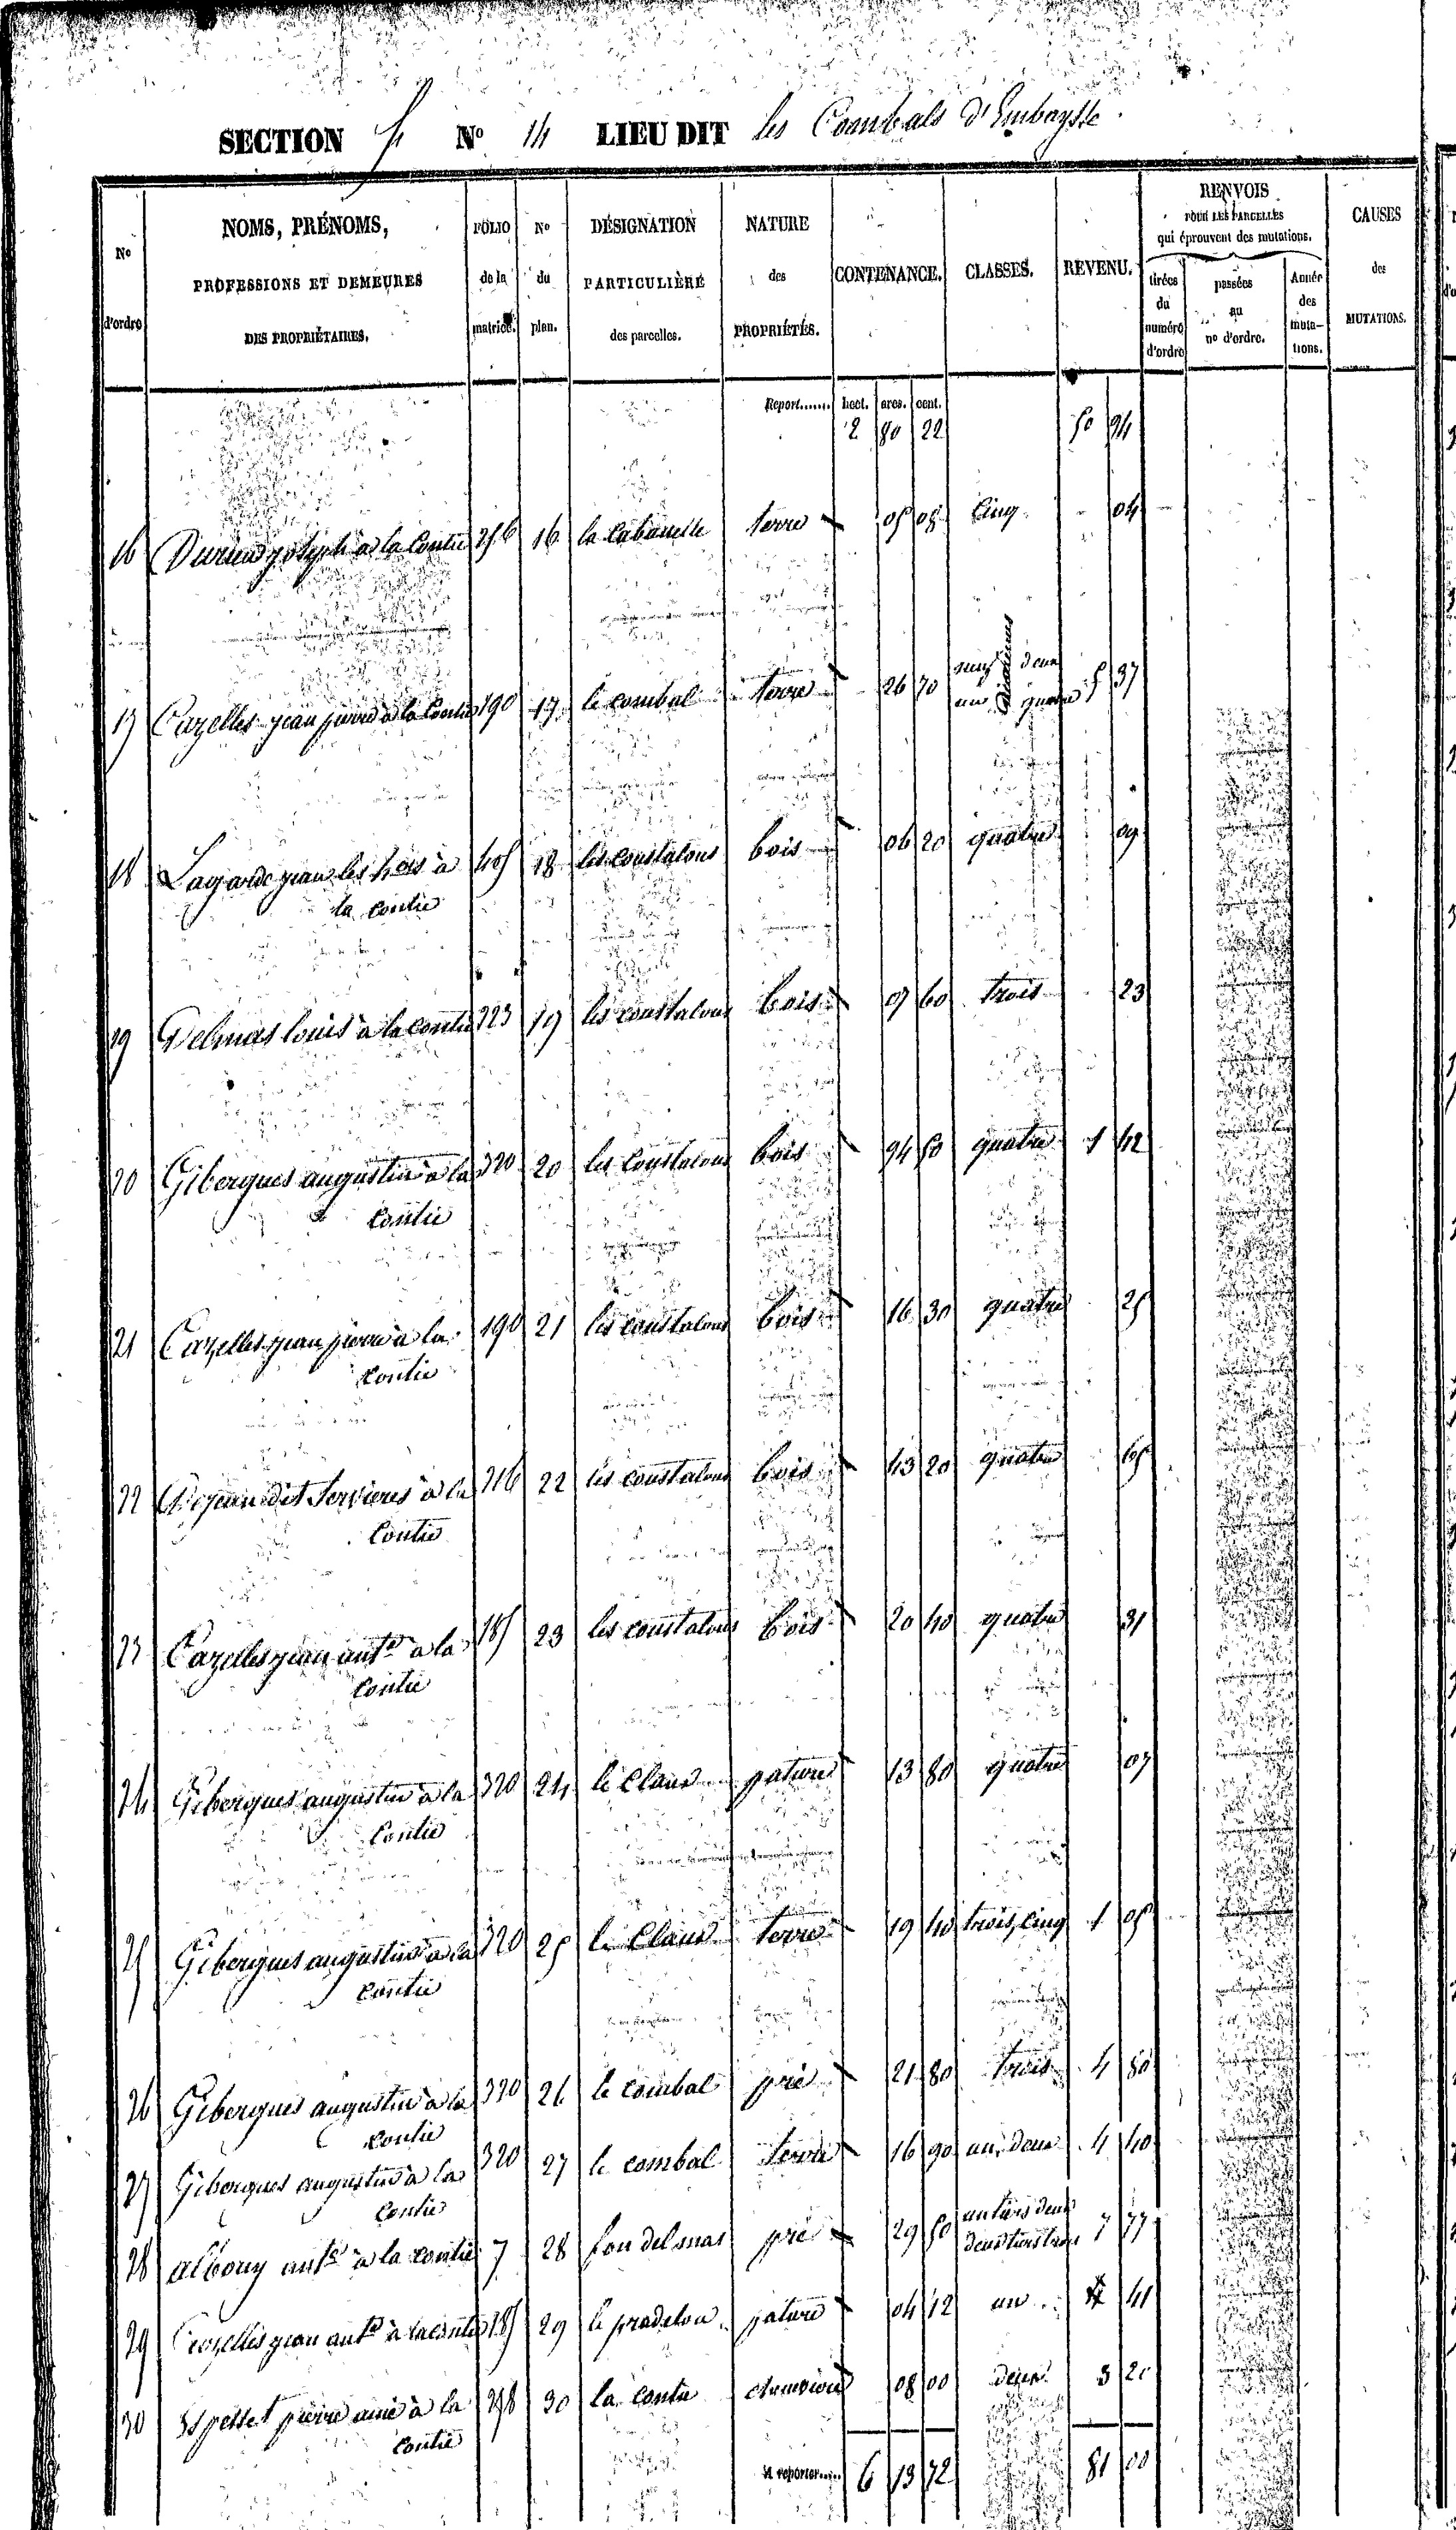 SECTION F N° 14 LIEU DIT les Combals d'Embaysse
N° d'ordre NOMS, PRÉNOMS, PROFESSIONS ET DEMEURES DES PROPRIÉTAIRES. FOLIO de la matrice. N° du plan. DÉSIGNATION PARTICULIÈRE des parcelles. NATURE des PROPRIÉTÉS. CONTENANCE. CLASSES. REVENU. RENVOIS POUR LES PARCELLES qui éprouvent des mutations. tirées du numéro d'ordre passées au n° d'ordre. Année des muta-tions. CAUSES des MUTATIONS.
Report....... hect. ares. cent.
2 80 22 50 94
16 Durieu joseph à la Contie 256 16 la cabanelle terre 05 08 Cinq 04
17 Cazelles jean pierre à la Contie 190 17 le combal terre 26 70 5 37
18 Lagarde jean les hers à 405 18 les coustalous bois 06 20 quatre 09
la contie
19 Delmas louis à la contie 223 19 les coustalous bois 07 60 trois 23
20 Gibergues augustin à la 320 20 les coustalous bois 94 50 quatre 1 42
Contie
21 Cazelles jean pierre à la 190 21 les coustalous bois 16 30 quatre 25
Contie
22 dit Servieres à la 216 22 les coustalous bois 43 20 quatre 65
Contie
23 Cazelles jean ant.e à la 185 23 les coustalous bois 20 40 quatre 31
Contie
24 Gibergues augustin à la 320 24 le Claux pature 13 80 quatre 07
Contie
25 Gibergues augustin à la 320 25 le Claux terre 19 40 trois, cinq 1 05
Contie
26 Gibergues augustin à la 320 26 le combal pré 21 80 trois 4 80
Contie
27 Gibergues augustin à la 320 27 le combal terre 16 90 un, deux 4 40
Contie
28 albouy ant.e à la contie 7 28 fon del mas pré 29 50 un tiers deux deux tiers trois 7 77
29 Cazelles jean ant.e à la contie 185 29 le pradelou pature 04 12 un 41
30 Espellet pierre ainé à la 298 30 la contie 08 00 deux 3 20
Contie
A reporter..... 6 13 72 81 00